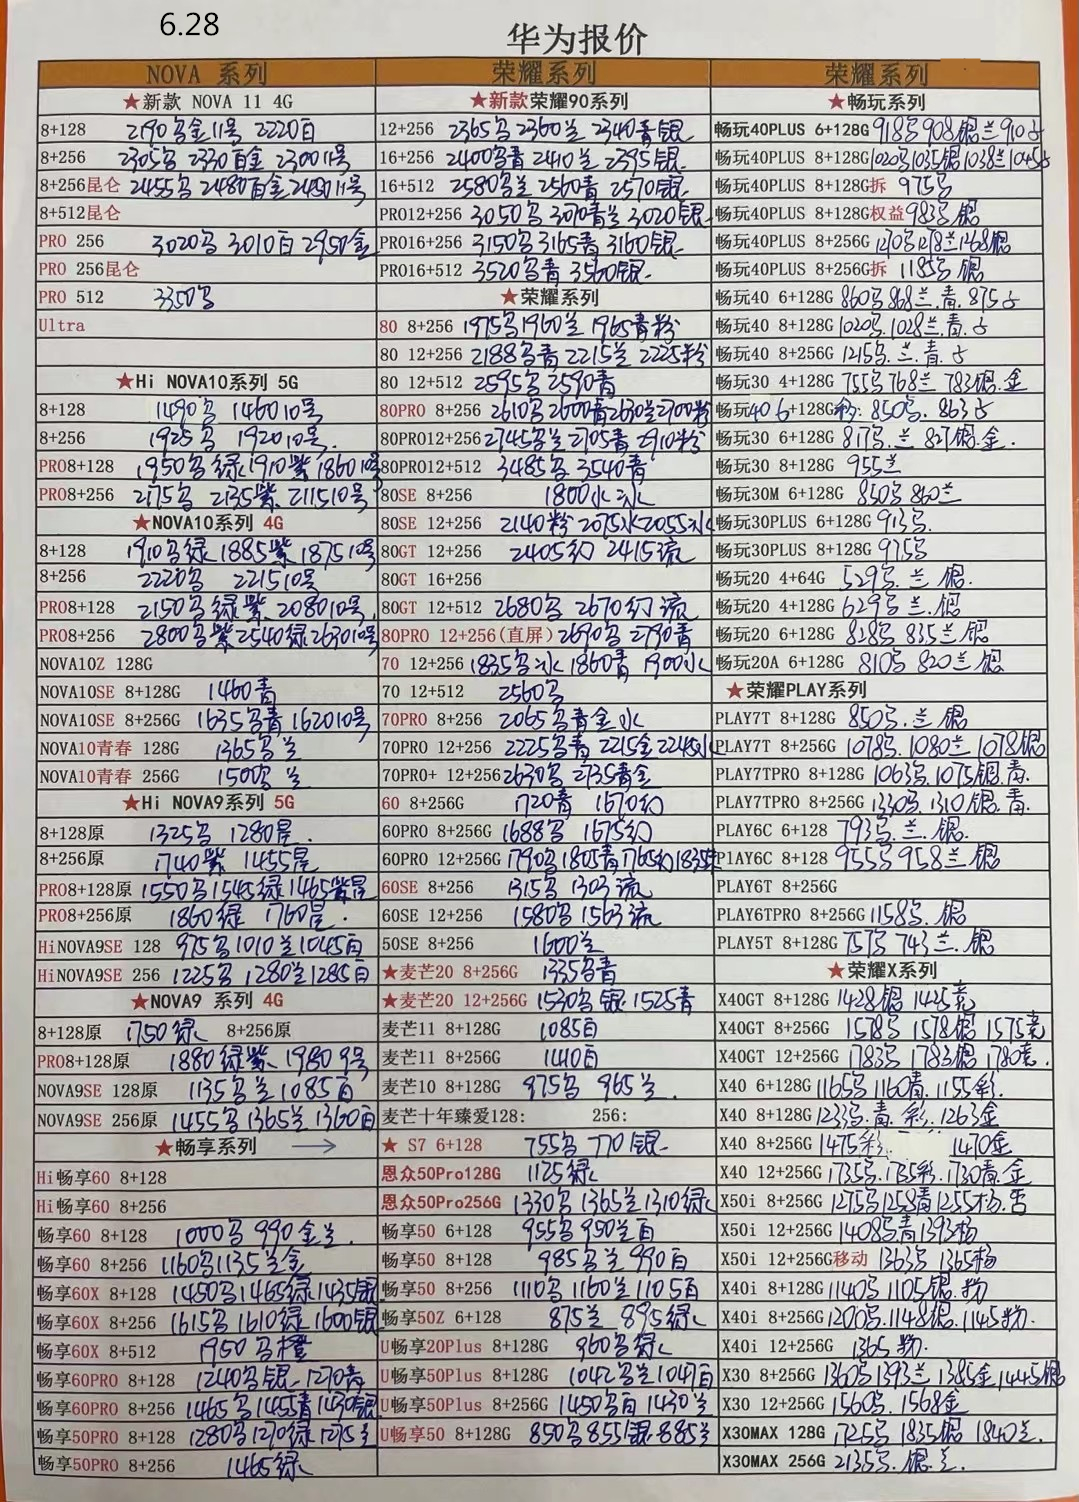 6.28
华为报价
NOVA 系列
★新款 NOVA 11 4G
8+128 2190乌金11号 2220白
8+256 2305乌 2330白金 2300 11号
8+256昆仑 2455乌 2480白金 2490 11号
8+512昆仑
PRO 256 3020乌 3010白 2950金
PRO 256昆仑
PRO 512 3350乌
Ultra
★Hi NOVA10系列 5G
8+128 1490乌 1460 10号
8+256 1925乌 1920 10号.
PRO8+128 1950乌绿 1910紫 1860 10号
PRO8+256 2175乌 2135紫. 2115 10号
★NOVA10系列 4G
8+128 1910乌绿 1885紫 1875 10号
8+256 2220乌 2215 10号
PRO8+128 2150乌绿紫. 2080 10号.
PRO8+256 2800乌紫 2540绿 2630 10号
NOVA10Z 128G
NOVA10SE 8+128G 1460青
NOVA10SE 8+256G 1635乌青 1620 10号
NOVA10青春 128G 1365乌兰
NOVA10青春 256G 1500乌 兰
★Hi NOVA9系列 5G
8+128原 1325乌 1280星.
8+256原 1740紫 1455星
PRO8+128原 1550乌 1545绿 1465紫星
PRO8+256原 1860绿 1760星.
HiNOVA9SE 128 975乌 1010兰 1045白
HiNOVA9SE 256 1225乌 1280兰 1285白
★NOVA9 系列 4G
8+128原 1750绿 8+256原
PRO8+128原 1880绿紫. 1980 9号
NOVA9SE 128原 1135乌兰 1085白
NOVA9SE 256原 1455乌 1365兰 1360白
★畅享系列 →
Hi畅享60 8+128
Hi畅享60 8+256
畅享60 8+128 1000乌 990金兰.
畅享60 8+256 1160乌 1135兰金
畅享60X 8+128 1450乌 1465绿 1435银
畅享60X 8+256 1615乌 1610绿 1600银
畅享60X 8+512 1950乌橙
畅享60PRO 8+128 1240乌银 1270青
畅享60PRO 8+256 1465乌 1455青 1430银
畅享50PRO 8+128 1280乌 1270绿 1275兰
畅享50PRO 8+256 1465绿
荣耀系列
★新款荣耀90系列
12+256 2365乌 2360兰 2340青银
16+256 2400乌青 2410兰 2395银
16+512 2580乌兰 2560青 2570银
PRO12+256 3050乌 3070青兰 3020银
PRO16+256 3150乌 3165青 3160银
PRO16+512 3520乌青 3560银
★荣耀系列
80 8+256 1975乌 1960兰 1965青粉
80 12+256 2188乌青 2215兰 2225粉
80 12+512 2595乌 2590青
80PRO 8+256 2610乌 2600青 2630兰 2700粉
80PRO12+256 2745乌兰 2705青 2910粉
80PRO12+512 3485乌 3540青
80SE 8+256 1800水冰
80SE 12+256 2140粉 2075水 2055冰
80GT 12+256 2405幻 2415流
80GT 16+256
80GT 12+512 2680乌 2670幻流
80PRO 12+256(直屏) 2690乌 2790青
70 12+256 1835乌冰 1860青 1900水
70 12+512 2560乌
70PRO 8+256 2065乌青金水
70PRO 12+256 2225乌青 2215金 2245水
70PRO+ 12+256 2630乌 2735青金
60 8+256G 1720青 1670幻
60PRO 8+256G 1688乌 1675幻
60PRO 12+256G 1790乌 1805青 1765幻 1835
60SE 8+256 1315乌 1303流
60SE 12+256 1580乌 1563流
50SE 8+256 1600兰
★麦芒20 8+256G 1335乌青
★麦芒20 12+256G 1530乌银. 1525青
麦芒11 8+128G 1085白
麦芒11 8+256G 1410白
麦芒10 8+128G 975乌 965兰
麦芒十年臻爱128: 256:
★ S7 6+128 755乌 770银
恩众50Pro128G 1125绿
恩众50Pro256G 1330乌 1365兰 1310绿
畅享50 6+128 955乌 950兰白
畅享50 8+128 985乌兰 990白
畅享50 8+256 1110乌 1160兰 1105白
畅享50Z 6+128 875兰 895绿
U畅享20Plus 8+128G 960乌绿
U畅享50Plus 8+128G 1042乌兰 1047白
U畅享50Plus 8+256G 1450乌白 1430兰
U畅享50 8+128G 850乌 855银 885兰
荣耀系列
★畅玩系列
畅玩40PLUS 6+128G 918乌 908银兰 910占
畅玩40PLUS 8+128G 1020乌 1035银 1038兰 1045占
畅玩40PLUS 8+128G拆 975乌
畅玩40PLUS 8+128G权益 983乌 银
畅玩40PLUS 8+256G 1270乌 1278兰 1268银
畅玩40PLUS 8+256G拆 1185乌 银
畅玩40 6+128G 860乌 868兰.青. 875占
畅玩40 8+128G 1020乌. 1028兰.青.占
畅玩40 8+256G 1215乌.兰.青.占
畅玩30 4+128G 755乌 768兰 783银.金
畅玩40 6+128G移. 850乌. 863占
畅玩30 6+128G 817乌.兰 827银.金.
畅玩30 8+128G 955兰
畅玩30M 6+128G 850乌 860兰
畅玩30PLUS 6+128G 913乌.
畅玩30PLUS 8+128G 975乌
畅玩20 4+64G 529乌.兰 银.
畅玩20 4+128G 629乌.兰 银
畅玩20 6+128G 828乌 835兰 银
畅玩20A 6+128G 810乌 820兰 银
★荣耀PLAY系列
PLAY7T 8+128G 850乌.兰 银
PLAY7T 8+256G 1078乌. 1080兰 1078银
PLAY7TPRO 8+128G 1063乌. 1075银.青.
PLAY7TPRO 8+256G 1330乌. 1310银.青.
PLAY6C 6+128 793乌.兰.银.
PLAY6C 8+128 955乌 958兰 银
PLAY6T 8+256G
PLAY6TPRO 8+256G 1158乌. 银
PLAY5T 8+128G 757乌 743兰.银
★荣耀X系列
X40GT 8+128G 1428银 1425竞
X40GT 8+256G 1578乌 1578银 1575竞
X40GT 12+256G 1783乌 1783银 1780竞.
X40 6+128G 1165乌 1160青. 1155彩.
X40 8+128G 1233乌.青.彩. 1263金
X40 8+256G 1475彩 1470金
X40 12+256G 1735乌. 1755彩. 1730青.金
X50i 8+256G 1275乌 1258青 1255杨.
X50i 12+256G 1408乌青 1393杨
X50i 12+256G移动 1363乌 1365杨
X40i 8+128G 1140乌 1105银.粉
X40i 8+256G 1200乌. 1148银. 1145粉.
X40i 12+256G 1365粉.
X30 8+256G 1360乌 1393兰 1385金. 1445银
X30 12+256G 1560乌. 1568金
X30MAX 128G 1725乌 1835银 1840兰.
X30MAX 256G 2135乌. 银兰.